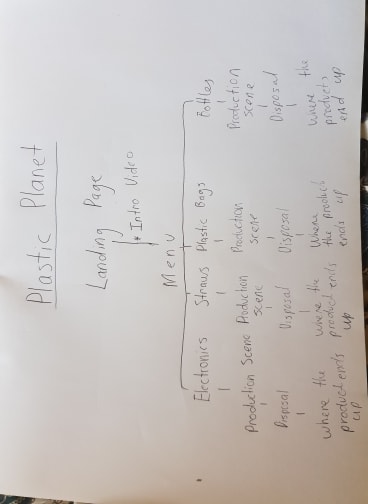 Plastic Planet
Landing Page
* Intro Video
Menu
Electronics Straws Plastic Bags Bottles
Production Scene
Production
scene
Production
scene
Production
scene
Disposal
Disposal
Disposal
Disposal
where the
product ends
up
where the
product ends
up
where
the product
ends up
where the
products
end up